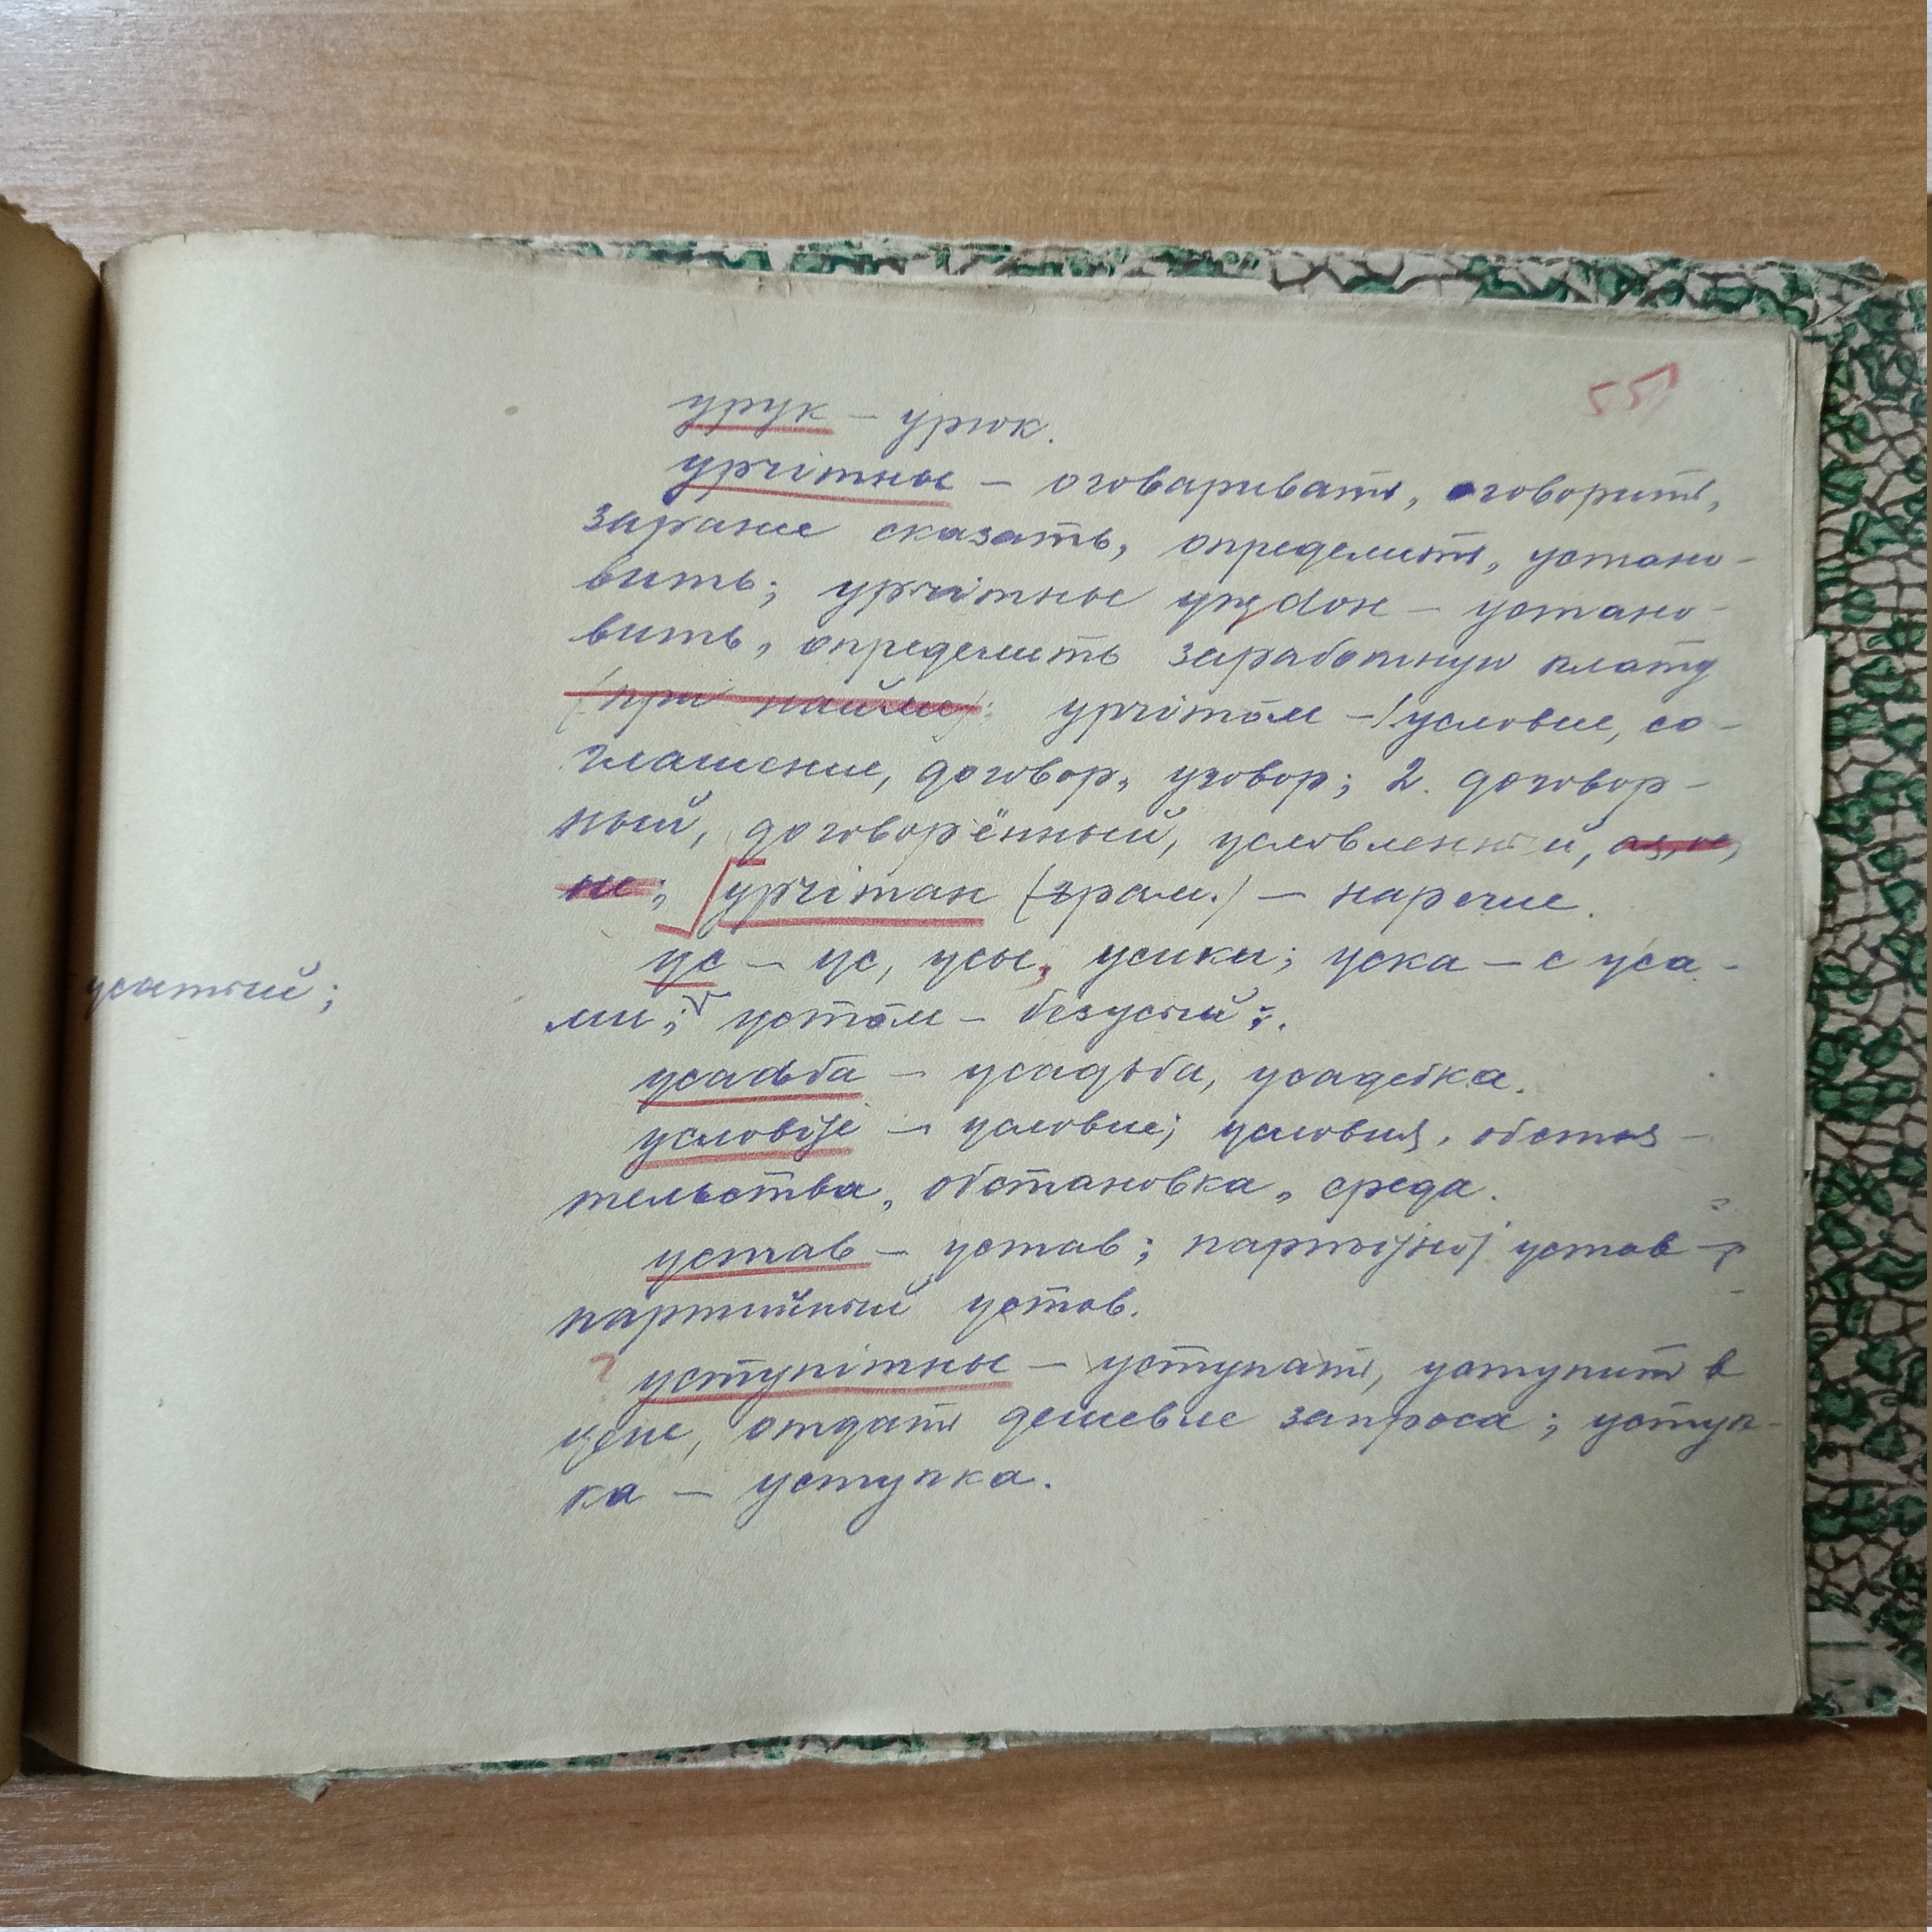 55
урук – урюк.
урчiтны – оговаривать, оговорить,
заранее сказать, определить, устано-
вить; урчiтны уҗдон – устано-
вить, определить заработную плату
(при найме); урчiтӧм – 1 условие, со-
глашение, договор, уговор; 2. договор-
ный, договорённый, условленный, ая, ое,
ые; урчiтан (грам.) – наречие.
ус – ус, усы, усики; уска – с уса-
усатый;
ми; устӧм – безусый;.
усаԁьба – усадьба, усадебка.
условijӧ – условие; условия, обстоя-
тельства, обстановка, среда.
устав – устав; партijнӧj устав –
партийный устав.
? уступiтны – уступать, уступить в
цене, отдать дешевле запроса; уступ-
ка – уступка.